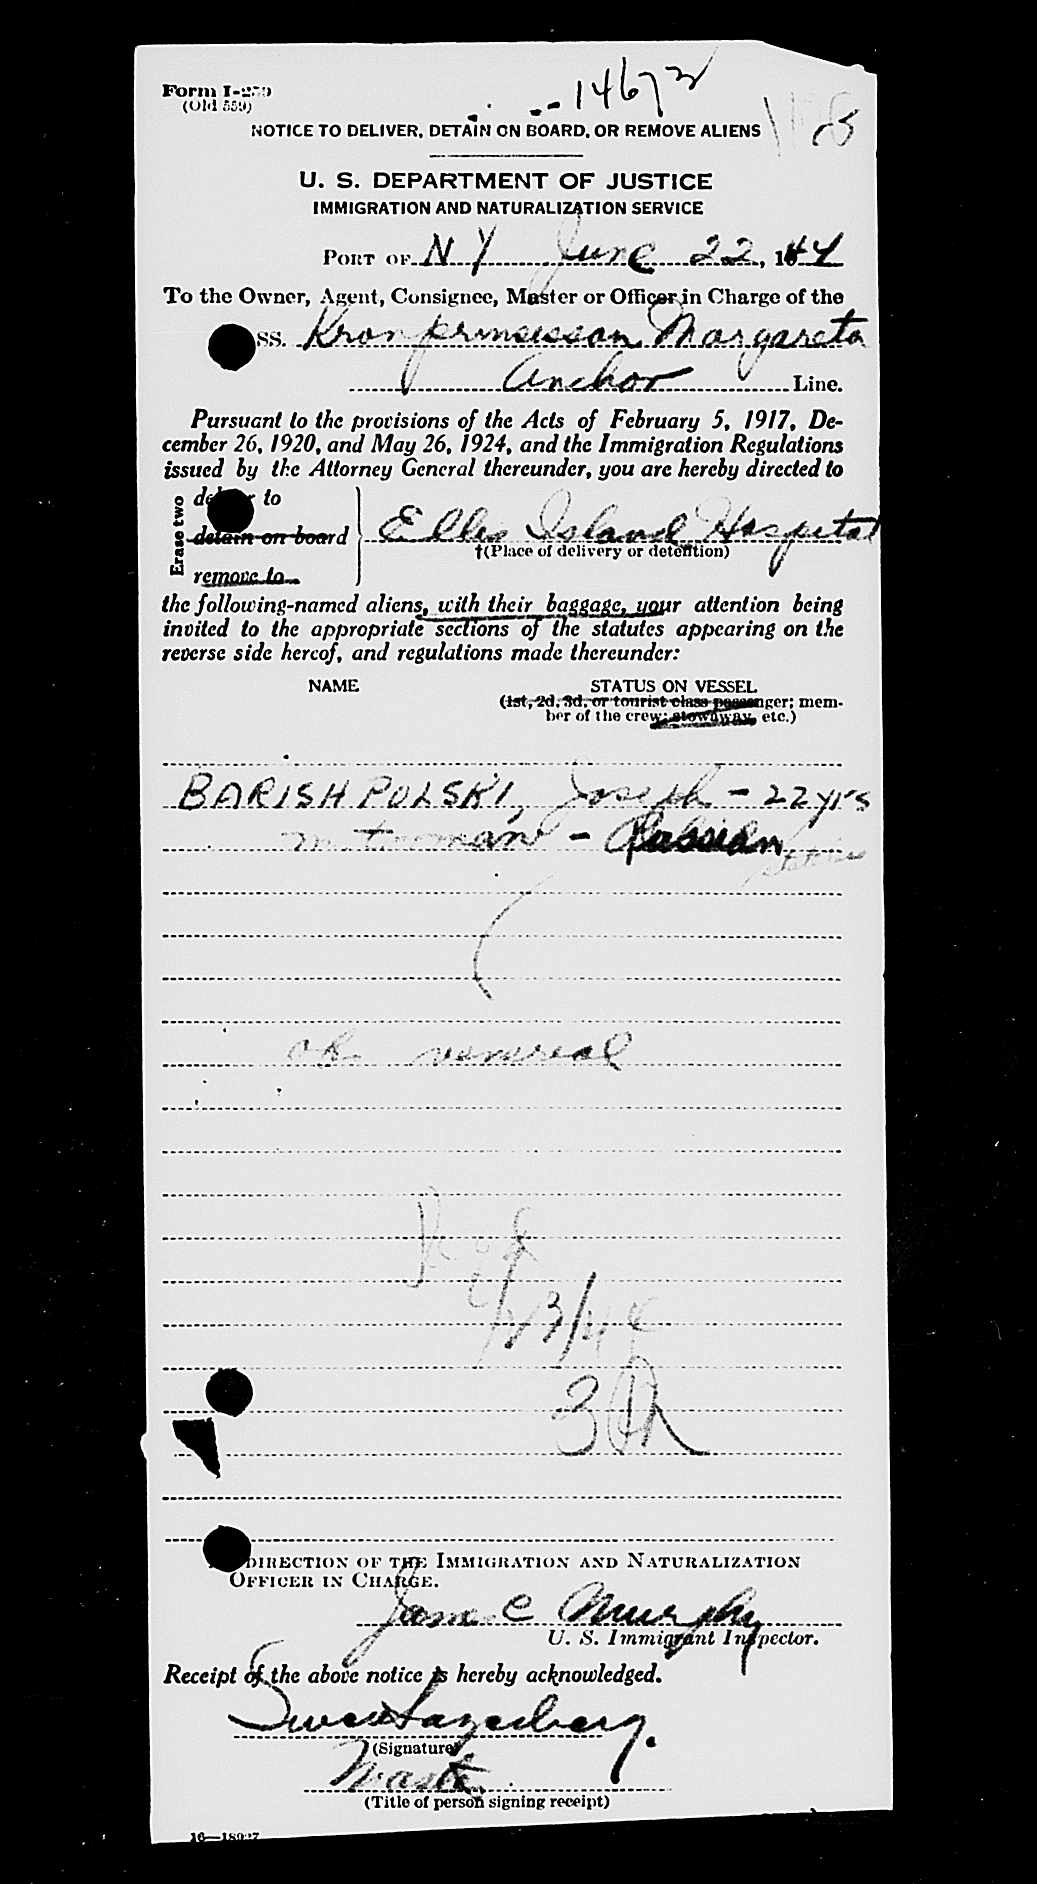 Form I-259
(Old 559)
14673
NOTICE TO DELIVER, DETAIN ON BOARD, OR REMOVE ALIENS
U. S. DEPARTMENT OF JUSTICE
IMMIGRATION AND NATURALIZATION SERVICE
PORT OF NY June 22, 1944
To the Owner, Agent, Consignee, Master or Officer in Charge of the
SS. Kronprinsessan Margareta
Anchor Line.
Pursuant to the provisions of the Acts of February 5, 1917, De-
cember 26, 1920, and May 26, 1924, and the Immigration Regulations
issued by the Attorney General thereunder, you are hereby directed to
Erase two
deliver to
detain on board
remove to
Ellis Island Hospital
†(Place of delivery or detention)
the following-named aliens, with their baggage, your attention being
invited to the appropriate sections of the statutes appearing on the
reverse side hereof, and regulations made thereunder:
NAME STATUS ON VESSEL
(1st, 2d, 3d, or tourist class passenger; mem-
ber of the crew; stowaway, etc.)
BARISHPOLSKI, Joseph - 22 yrs
motorman - Russian
venereal
6/23/44
DIRECTION OF THE IMMIGRATION AND NATURALIZATION
OFFICER IN CHARGE.
James C Murphy
U. S. Immigrant Inspector.
Receipt of the above notice is hereby acknowledged.
(Signature)
(Title of person signing receipt)
16—18027